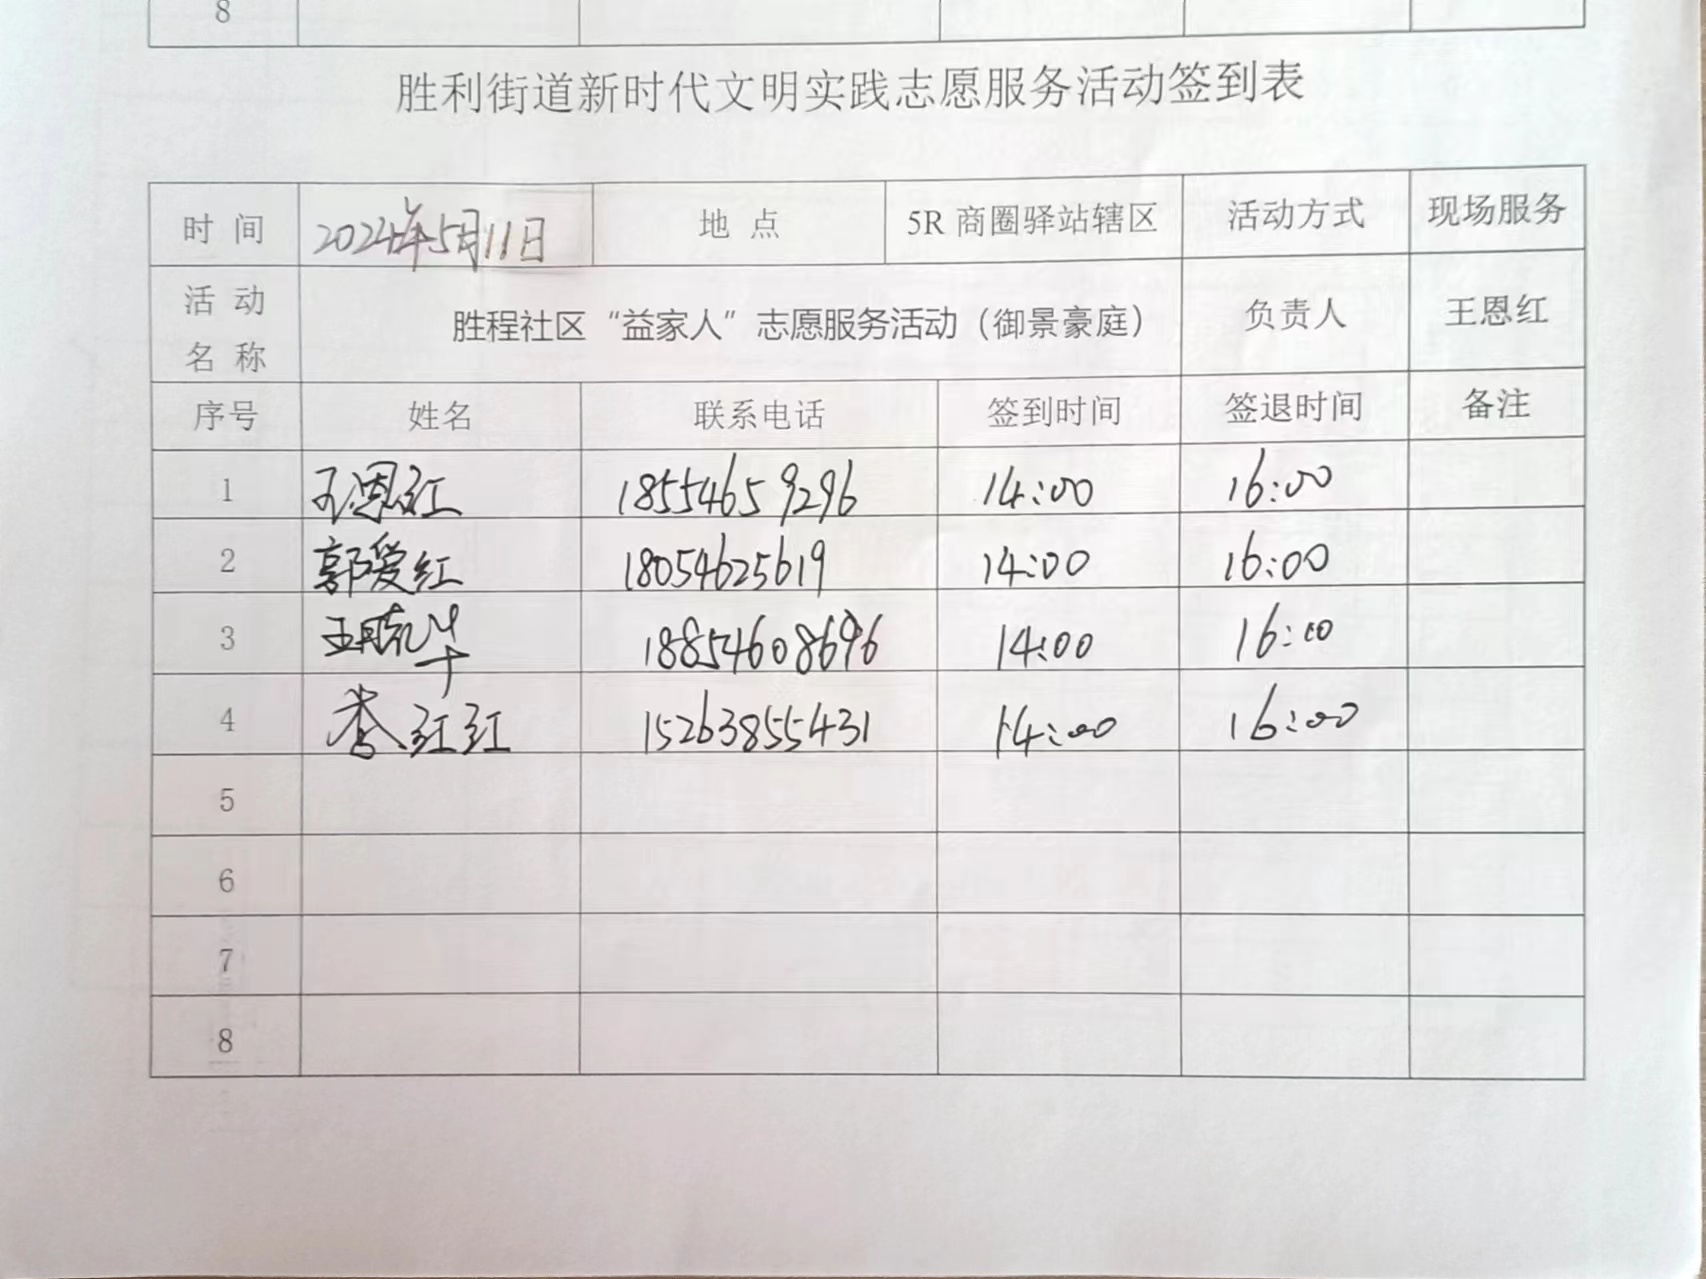 8
胜利街道新时代文明实践志愿服务活动签到表
时 间 2024年5月11日 地 点 5R 商圈驿站辖区 活动方式 现场服务
活 动 名 称 胜程社区“益家人”志愿服务活动（御景豪庭） 负责人 王恩红
序号 姓名 联系电话 签到时间 签退时间 备注
1 王恩红 18554659296 14:00 16:00
2 郭爱红 18054625619 14:00 16:00
3 王晓华 18854608696 14:00 16:00
4 红红 15263855431 14:00 16:00
5
6
7
8